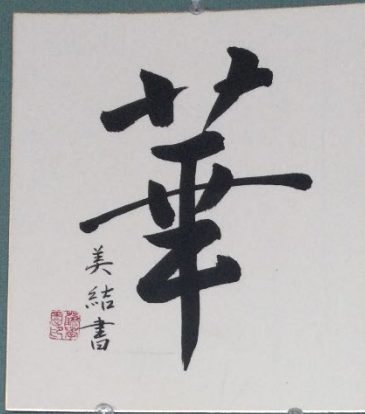 華
美結書